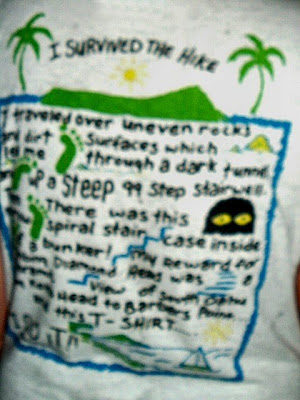 I SURVIVED THE HIKE
I traveled over uneven rocks
and dirt Surfaces which
led me through a dark tunnel
up a Steep 99 Step stairwell.
There was this
spiral stair case inside
of a bunker! My Reward for
Diamond Head was a
View of South Oahu
Head to Barbers Point
this T-SHIRT...